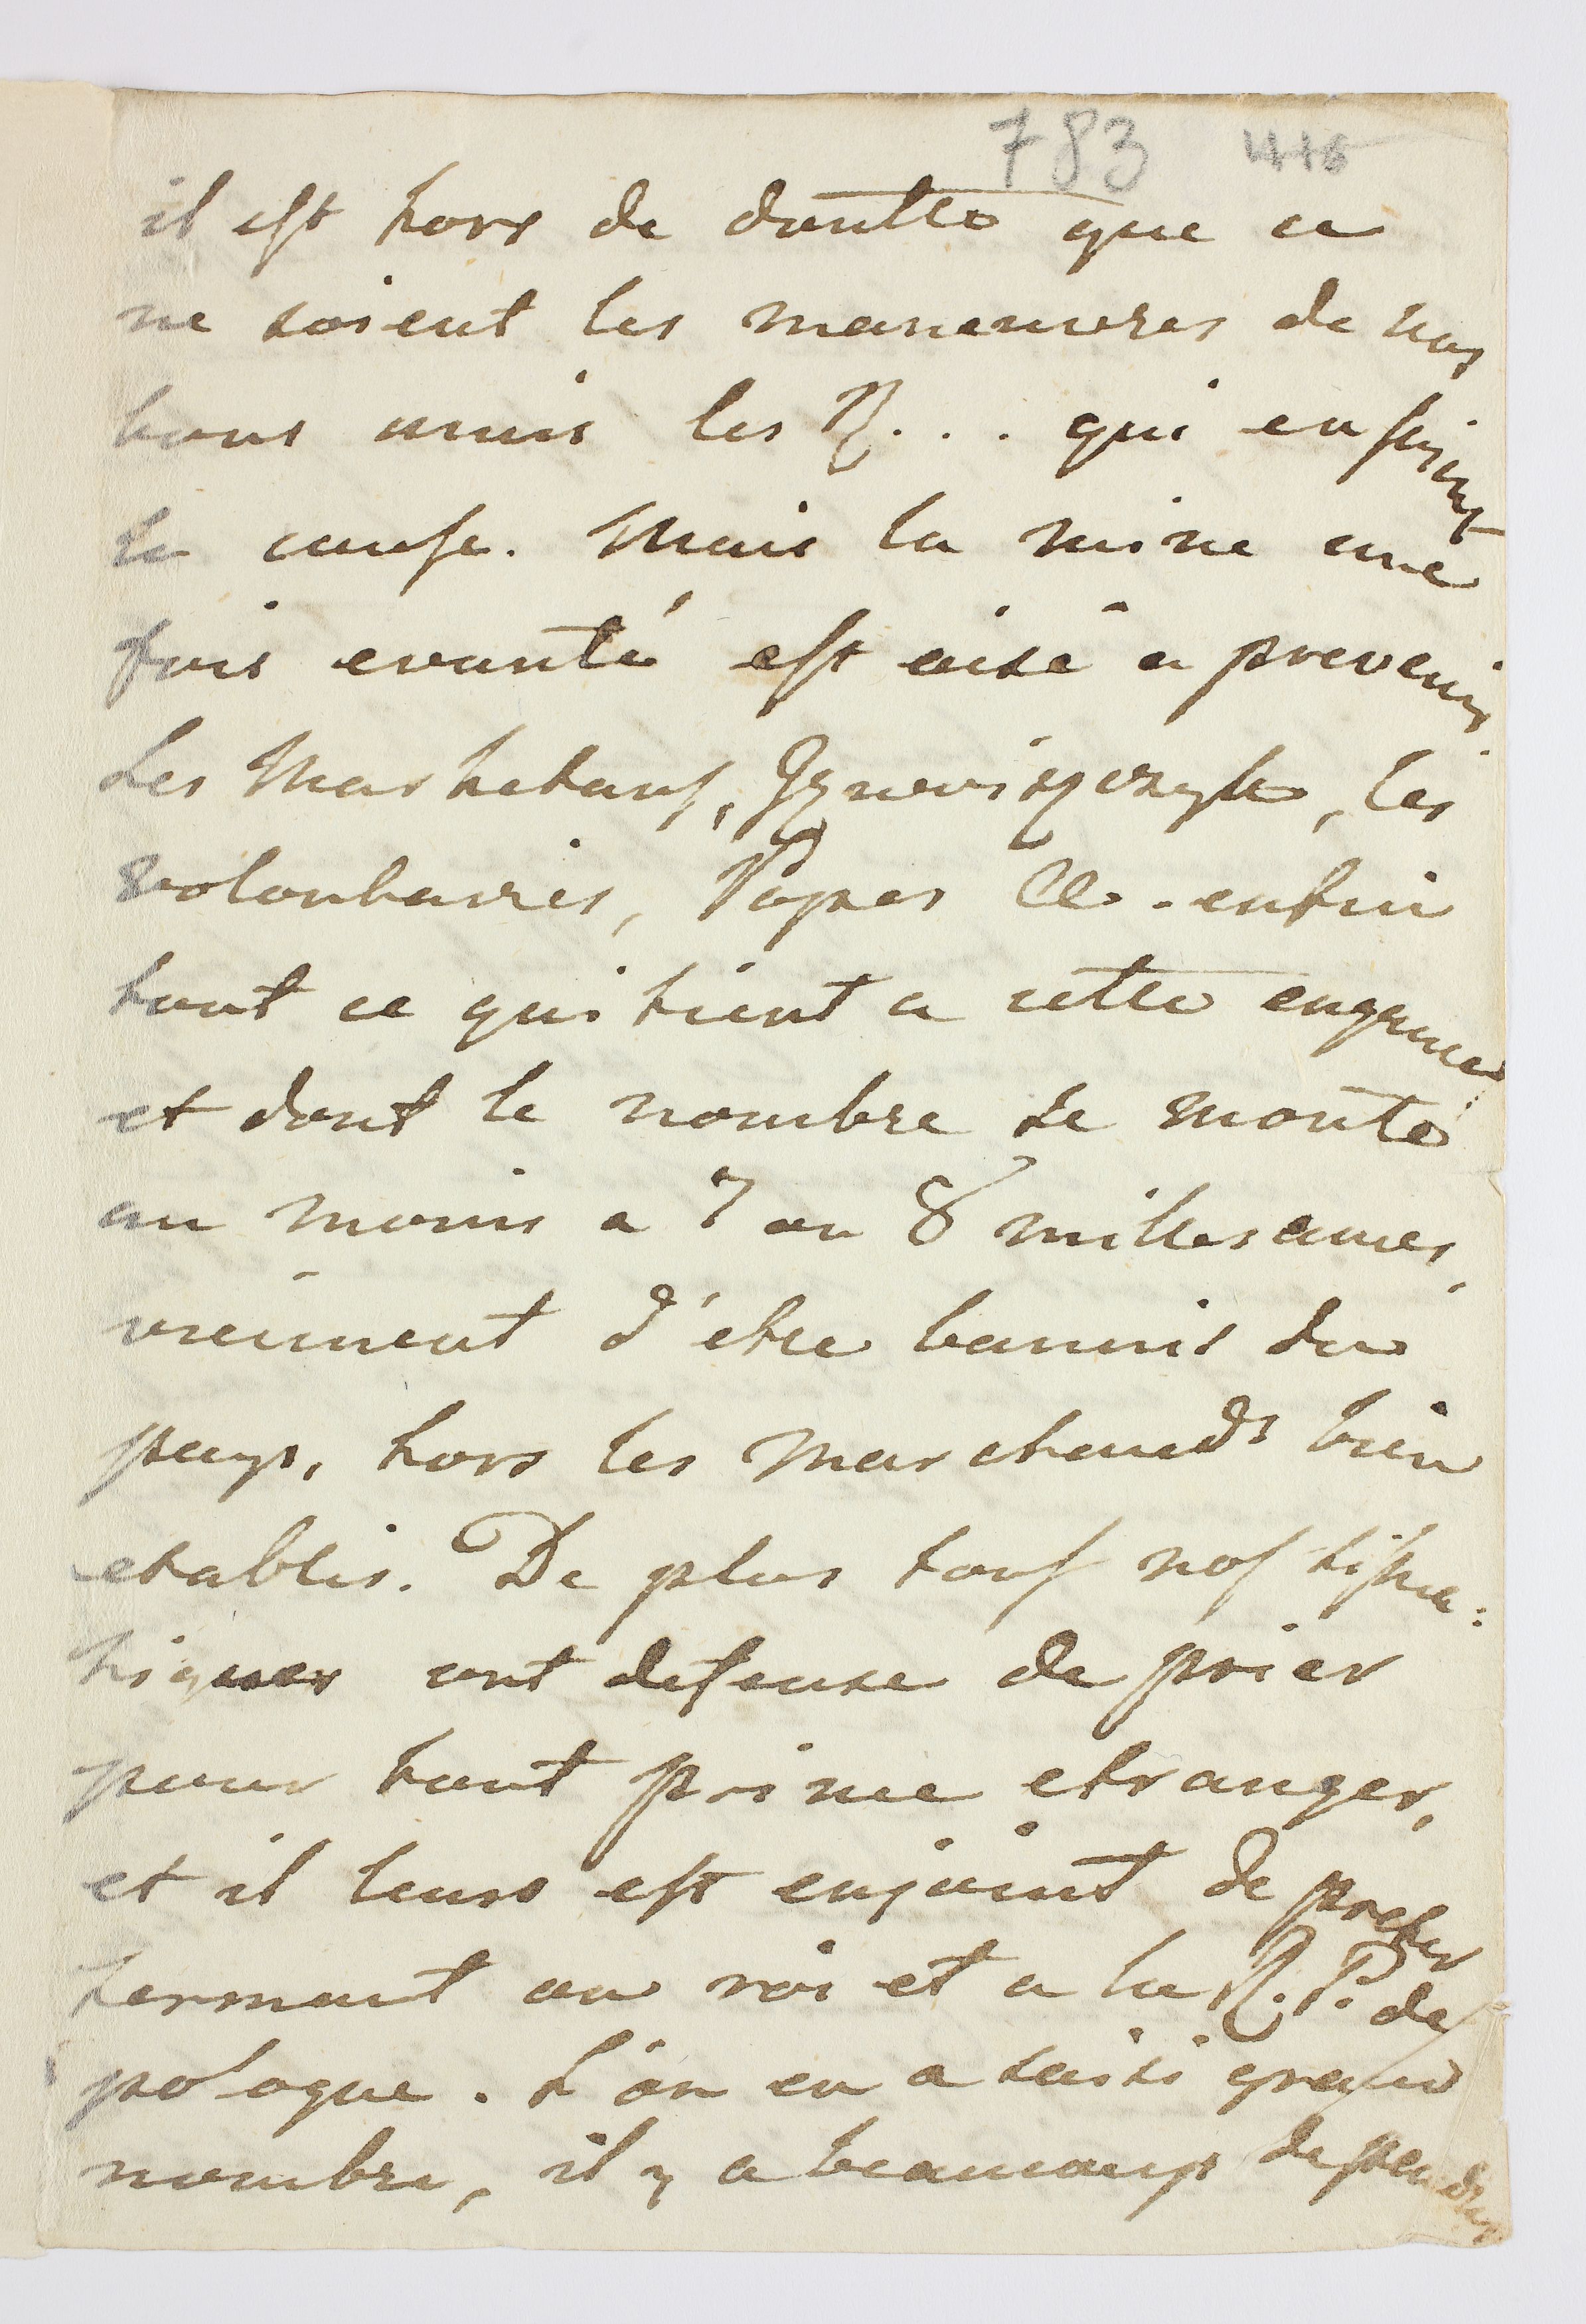 783 416
il est hors de doutte que ce
ne soient les maneuvres de nos
bons amis les R... qui en soient
la cause. Mais la mine une
fois evanté est aisé a prevenir
Les Marketans, les
volontaires, Popes &c. enfin
tout ce qui tient a cette engeance
et dont le nombre se monte
au moins a 7 ou 8 milles ames,
viennent d'etre bannis du
pays, hors les marchands bien
etablis. De plus tous nos sisma:
tiques ont defense de prier
pour tout prince etranger,
et il leurs est enjoint de preter
serment au roi et a la R. P. de
pologne. L'on en a saisi grand
nombre, il y a beaucoup de pendus